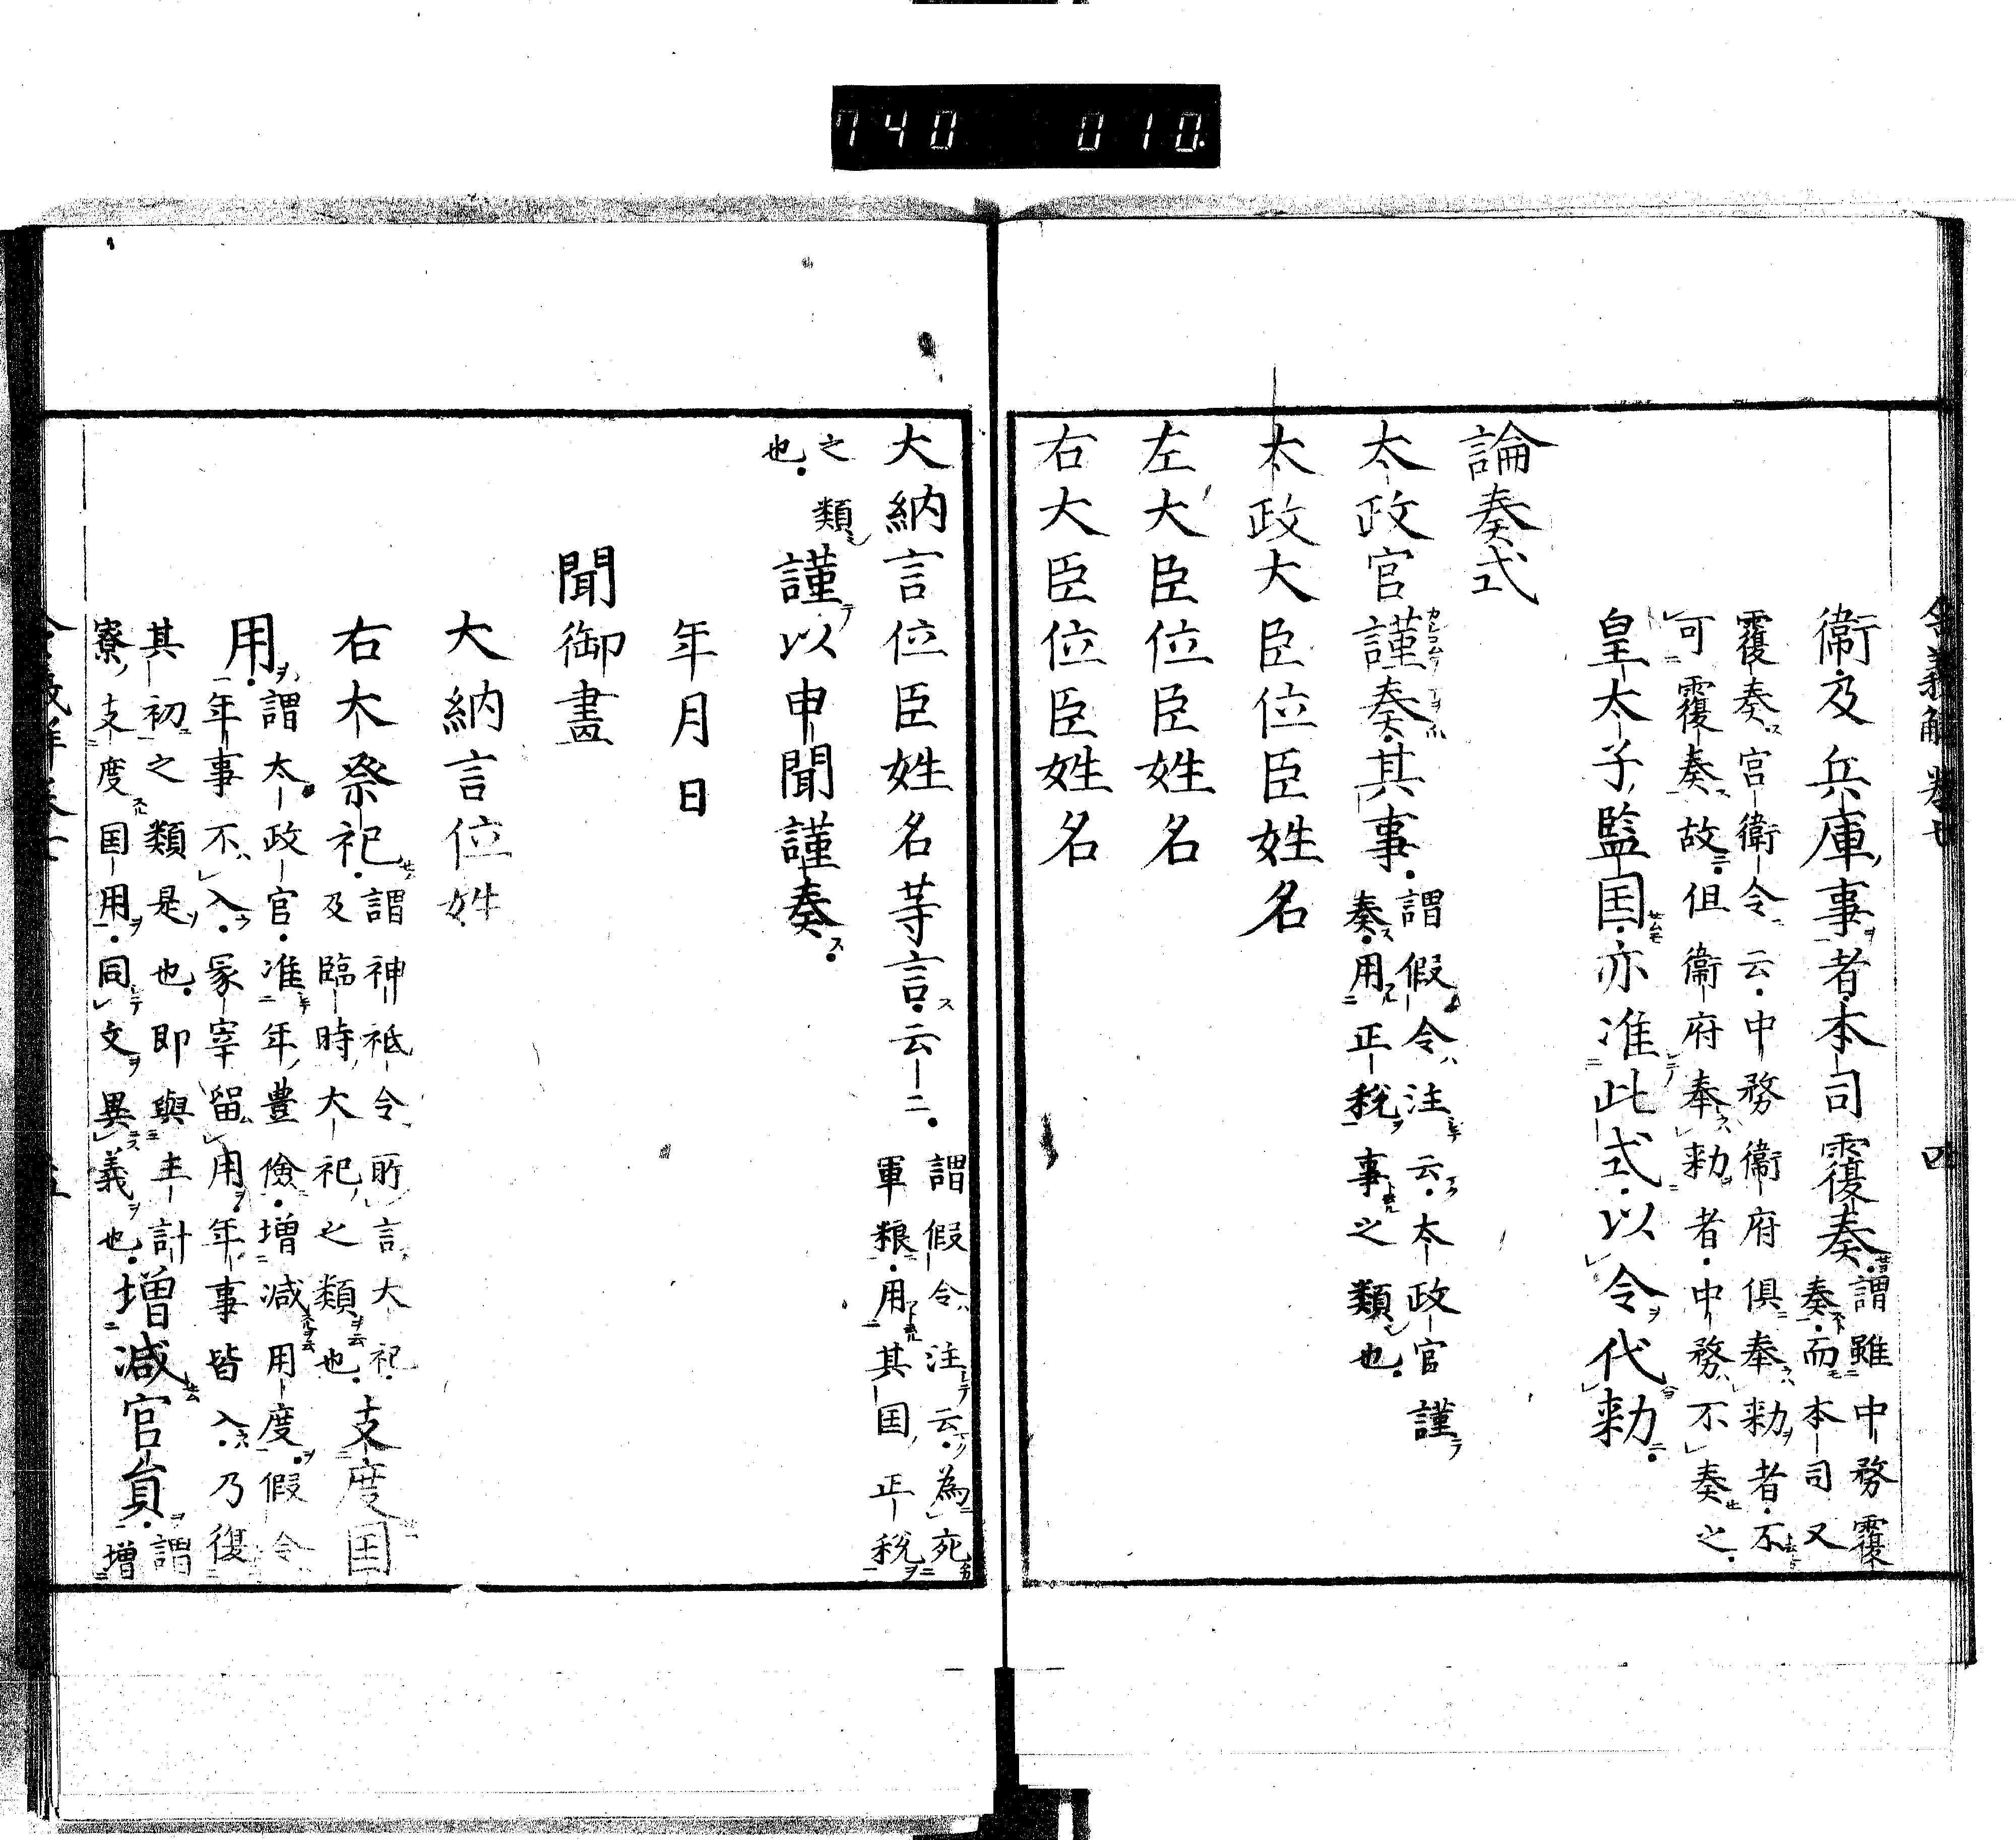 740 010
令義解 卷七 四
衞及兵庫事者本司覆奏謂雖中務覆
奏而本司又
覆奏宮衛令云中務衞府俱奉勅者不
可覆奏故但衞府奉勅者中務不奏之
皇太子監国亦准此式以令代勅
論奏式
太政官謹奏其事謂假令注云太政官謹
奏用正税事之類也
太政大臣位臣姓名
左大臣位臣姓名
右大臣位臣姓名
大納言位臣姓名等言云二謂假令注云為死
軍粮用其国正税
之類
也
謹以申聞謹奏
年月日
聞御畫
大納言位姓
右大祭祀謂神祇令所言大祀
及臨時大祀之類也支度国
用謂太政官准年豊儉増減用度假令
年事不入冢宰留用年事皆入乃復
其初之類是也即與主計
寮支度国用同文異義也増減官員謂
増